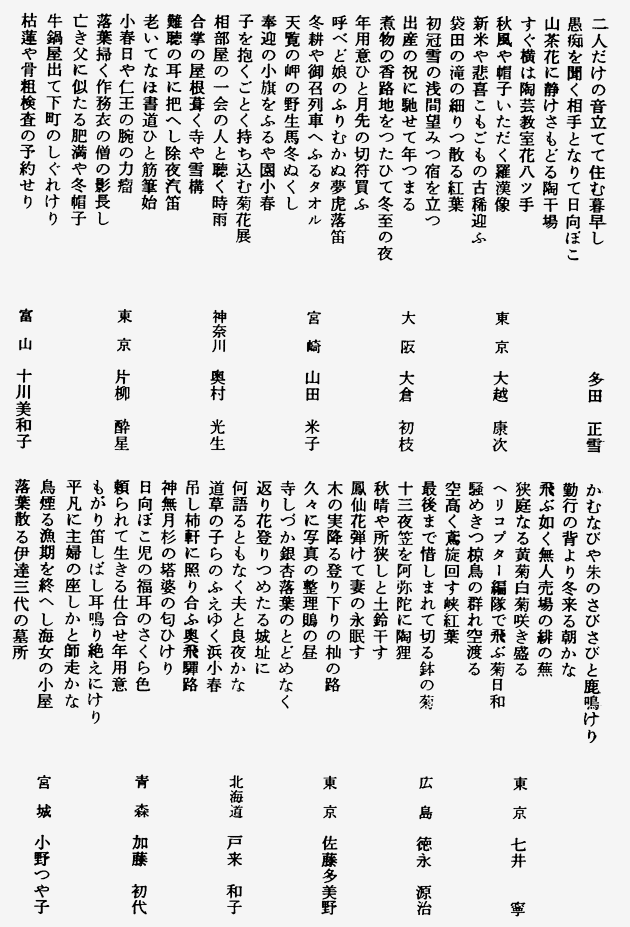 二人だけの音立てて住む暮早し
愚痴を聞く相手となりて日向ぼこ
山茶花に静けさもどる陶干場
すぐ横は陶芸教室花八ツ手
多田 正雪
秋風や帽子いただく羅漢像
新米や悲喜こもごもの古稀迎ふ
袋田の滝の細りつ散る紅葉
初冠雪の浅間望みつ宿を立つ
東京 大越 康次
出産の祝に馳せて年つまる
煮物の香路地をつたひて冬至の夜
年用意ひと月先の切符買ふ
呼べど娘のふりむかぬ夢虎落笛
大阪 大倉 初枝
冬耕や御召列車へふるタオル
天覧の岬の野生馬冬ぬくし
奉迎の小旗をふるや園小春
子を抱くごとく持ち込む菊花展
宮崎 山田 米子
相部屋の一会の人と聴く時雨
合掌の屋根葺く寺や雪構
難聴の耳に把へし除夜汽笛
老いてなほ書道ひと筋筆始
神奈川 奥村 光生
小春日や仁王の腕の力瘤
落葉掃く作務衣の僧の影長し
亡き父に似たる肥満や冬帽子
牛鍋屋出て下町のしぐれけり
東京 片柳 酔星
枯蓮や骨粗検査の予約せり
富山 十川美和子
かむなびや朱のさびさびと鹿鳴けり
勤行の背より冬来る朝かな
飛ぶ如く無人売場の緋の蕪
狭庭なる黄菊白菊咲き盛る
ヘリコプター編隊で飛ぶ菊日和
東京 七井 寧
騒めきつ椋鳥の群れ空渡る
空高く鳶旋回す峡紅葉
最後まで惜しまれて切る鉢の菊
十三夜笠を阿弥陀に陶狸
広島 徳永 源治
秋晴や所狭しと土鈴干す
鳳仙花弾けて妻の永眠す
木の実降る登り下りの杣の路
久々に写真の整理鵙の昼
東京 佐藤多美野
寺しづか銀杏落葉のとどめなく
返り花登りつめたる城址に
何語るともなく夫と良夜かな
道草の子らのふえゆく浜小春
北海道 戸来 和子
吊し柿軒に照り合ふ奥飛驒路
神無月杉の塔婆の匂ひけり
日向ぼこ児の福耳のさくら色
頼られて生きる仕合せ年用意
青森 加藤 初代
もがり笛しばし耳鳴り絶えにけり
平凡に主婦の座しかと師走かな
鳥煙る漁期を終へし海女の小屋
落葉散る伊達三代の墓所
宮城 小野つや子